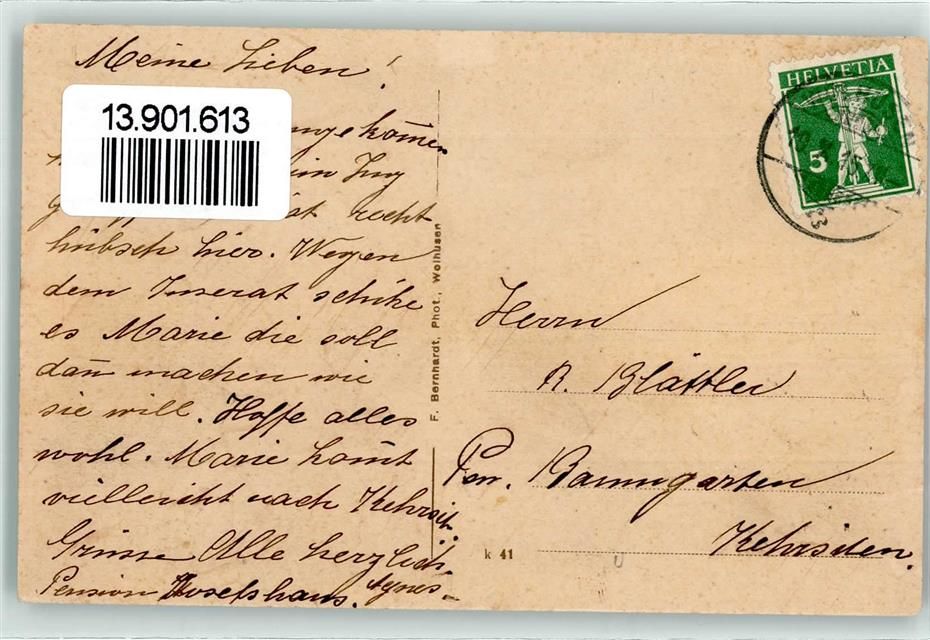 Meine Lieben!
13.901.613
angekom̄en
ein Zug
ist recht
hübsch hier. Wegen
dem Inserat schike
es Marie die soll
dan̄ machen wie
sie will. Hoffe alles
wohl. Marie kom̄t
vielleicht nach Kehrsit..
Grüsse Alle herzlich
Pension Josefshaus. Agnes-
F. Bernhardt, Phot., Wolhusen
HELVETIA
5
Herrn
R. Blättler
Pen. Baumgarten
Kehrsiten.
k 41